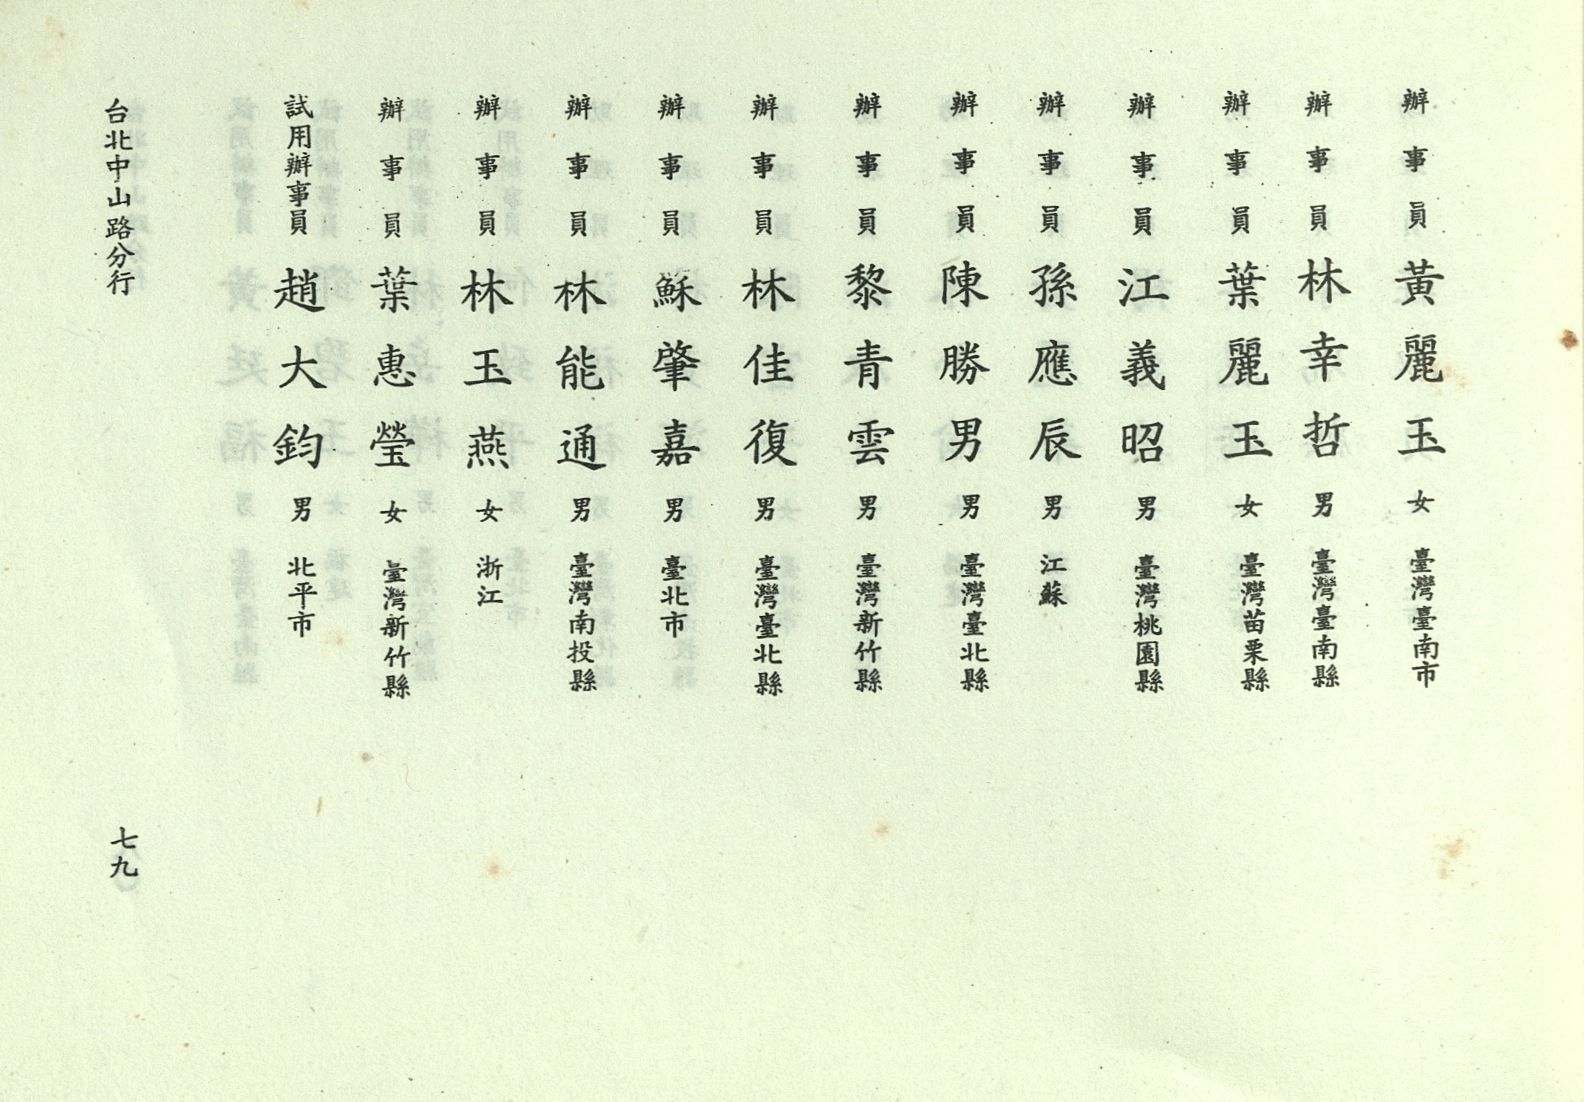 辦事員 黃麗玉 女 臺灣臺南市
辦事員 林幸哲 男 臺灣臺南縣
辦事員 葉麗玉 女 臺灣苗栗縣
辦事員 江義昭 男 臺灣桃園縣
辦事員 孫應辰 男 江蘇
辦事員 陳勝男 男 臺灣臺北縣
辦事員 黎青雲 男 臺灣新竹縣
辦事員 林佳復 男 臺灣臺北縣
辦事員 蘇肇嘉 男 臺北市
辦事員 林能通 男 臺灣南投縣
辦事員 林玉燕 女 浙江
辦事員 葉惠瑩 女 臺灣新竹縣
試用辦事員 趙大鈞 男 北平市
台北中山路分行
七九